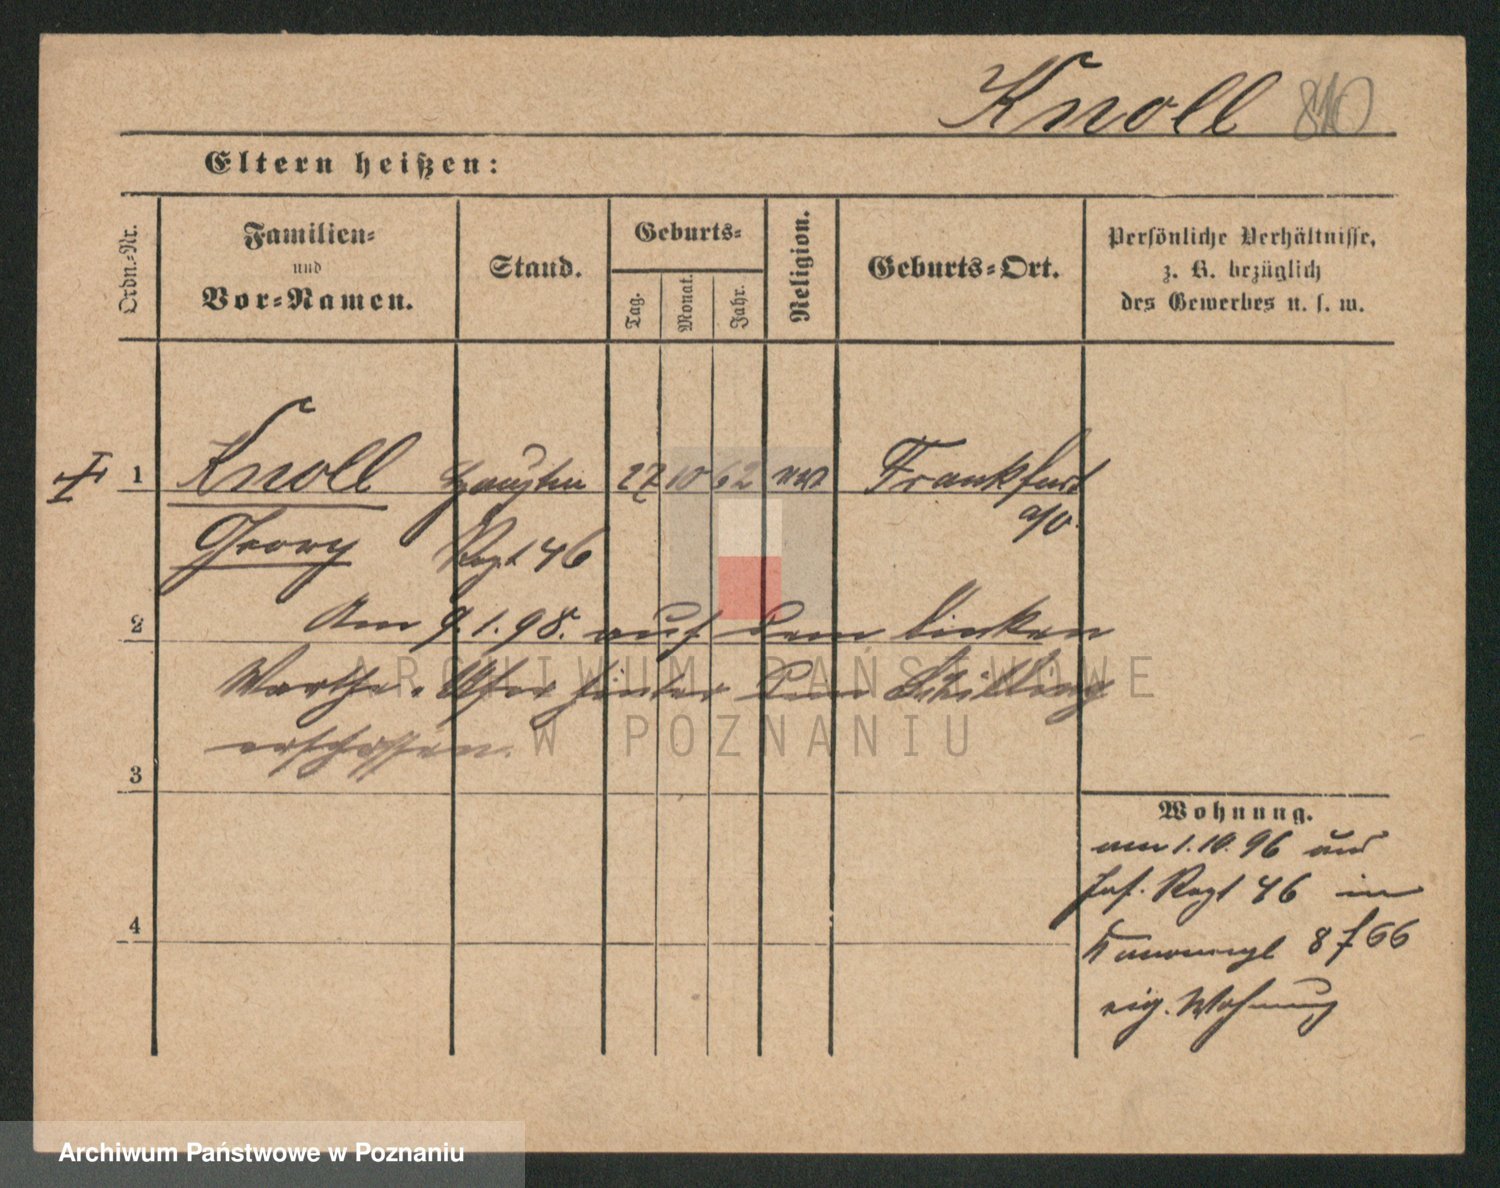 Knoll 810
Eltern heißen:
Ordn.-Nr.
Familien-
und
Vor-Namen.
Stand.
Geburts-
Tag.
Monat.
Jahr.
Religion.
Geburts-Ort.
Persönliche Verhältnisse,
z. B. bezüglich
des Gewerbes u. s. w.
1 Knoll Hauptm 27 10 62 Frankfurt
a/O.
Georg Regt 46
2 Am 9.1.98. auf dem linken
Warthe-Ufer hinter dem Schilling
erschossen.
3
4
Wohnung.
am 1.10.96 aus
Inf. Regt 46 in
Kanonenpl 8 f 66
eig. Wohnung
ARCHIWUM PAŃSTWOWE
W POZNANIU
Archiwum Państwowe w Poznaniu